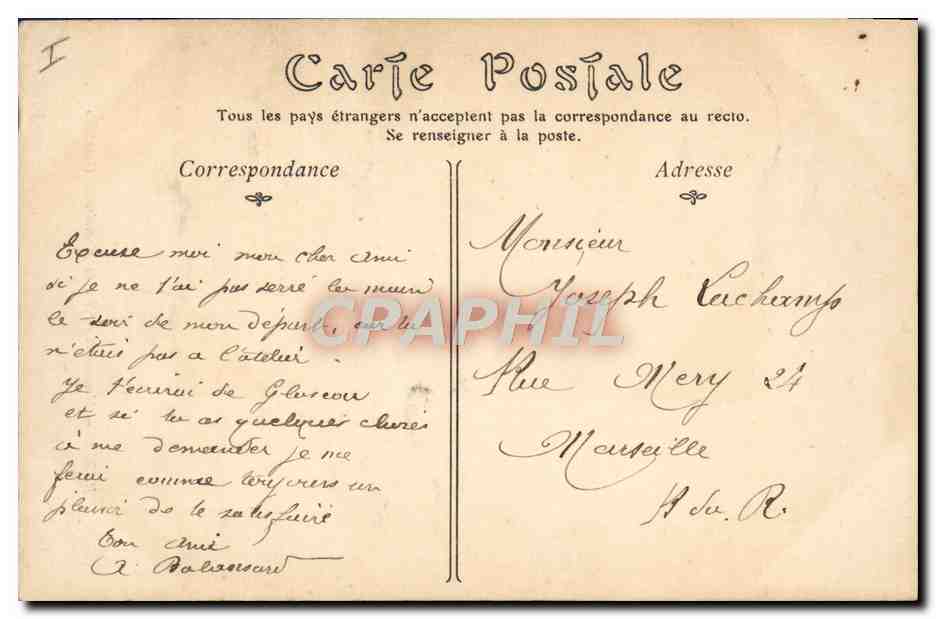 I
Carte Postale
Tous les pays étrangers n'acceptent pas la correspondance au recto.
Se renseigner à la poste.
Correspondance
Excuse moi mon cher ami
si je ne t'ai pas serré la main
le soir de mon départ, car tu
n'étais pas a l'atelier.
Je t'écrirai de Glascou
et si tu as quelques choses
à me demander je me
ferai comme toujours un
plaisir de te satisfaire
Ton ami
A Balansard
Adresse
Monsieur
Joseph Lachamp
Rue Mery 24
Marseille
B du R.
CPAPHIL